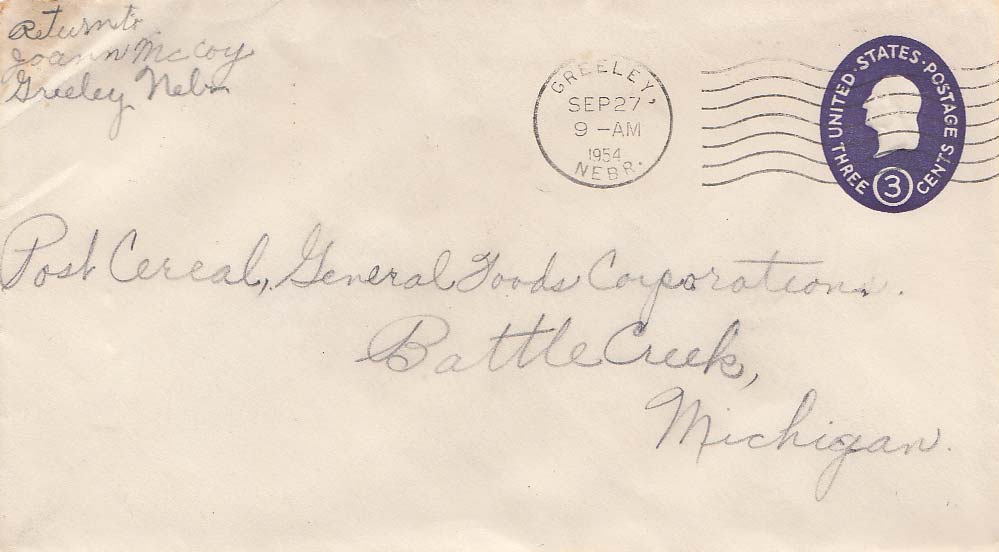 Return to
Joann McCoy
Greeley Nebr
GREELEY,
SEP 27
9 - AM
1954
NEBR.
UNITED STATES POSTAGE
THREE 3 CENTS
Post Cereal, General Foods Corporation.
Battle Creek,
Michigan.